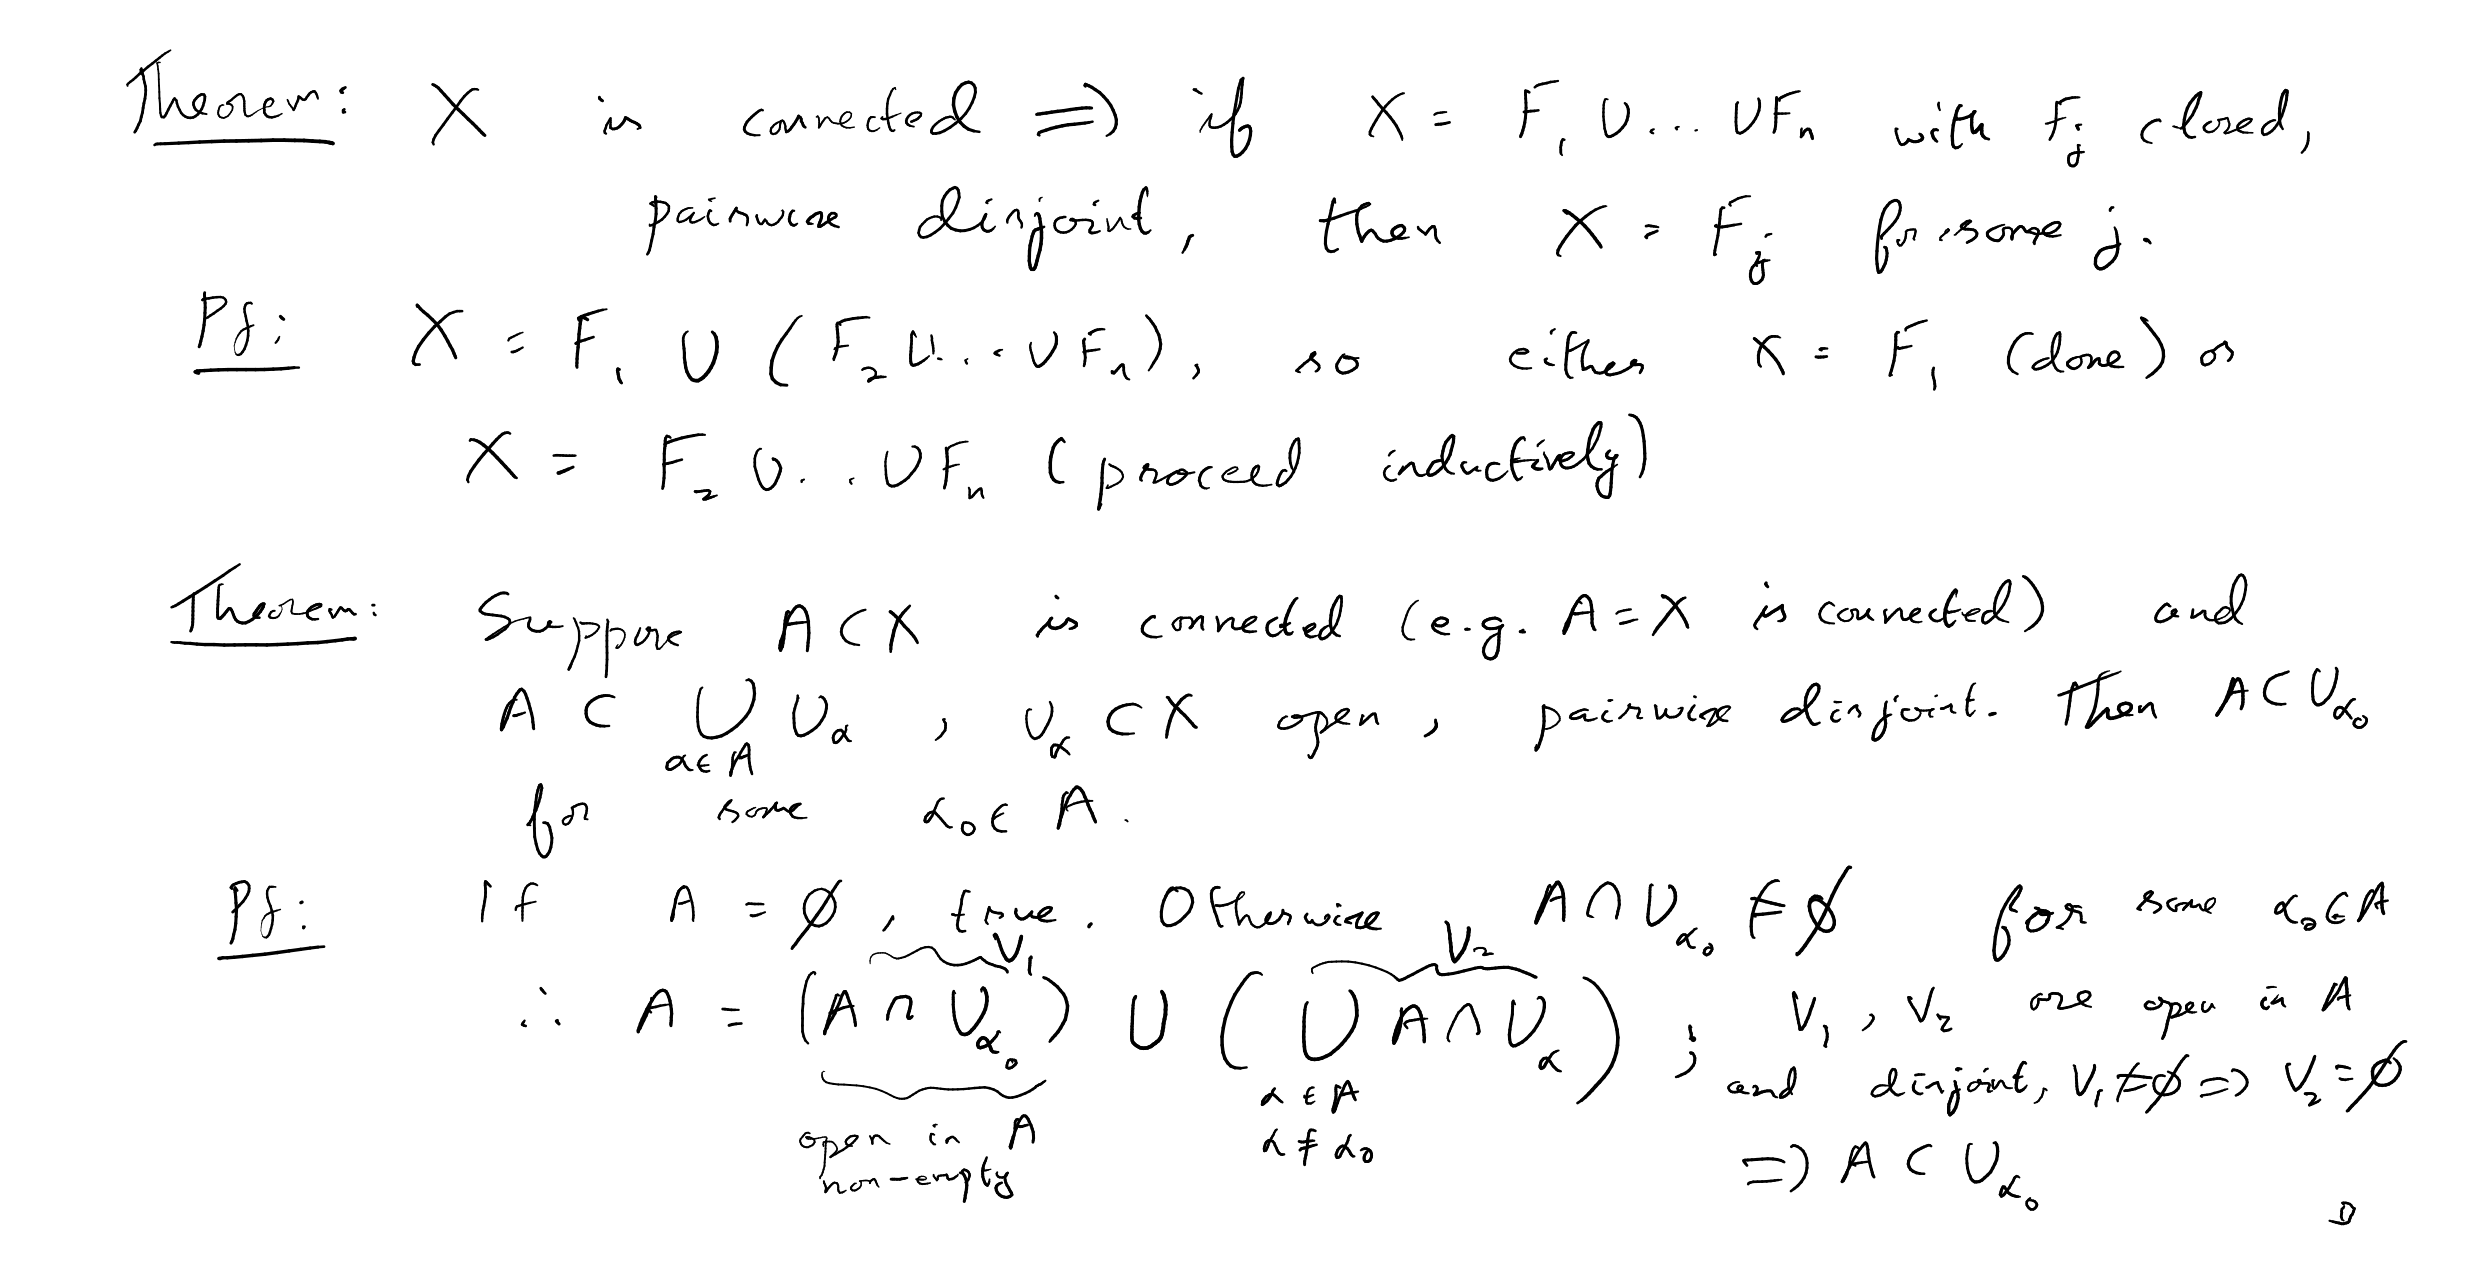 Theorem: X is connected => if X = F₁ ∪ ... ∪ Fₙ with Fⱼ closed,
pairwise disjoint, then X = Fⱼ for some j.
Pf: X = F₁ ∪ (F₂ ∪ ... ∪ Fₙ), so either X = F₁ (done) or
X = F₂ ∪ ... ∪ Fₙ (proceed inductively)
Theorem: Suppose A ⊂ X is connected (e.g. A = X is connected) and
A ⊂ ∪ U_α , U_α ⊂ X open, pairwise disjoint. Then A ⊂ U_α₀
α∈A
for some α₀ ∈ A.
Pf: If A = ∅, true. Otherwise A ∩ U_α₀ ≠ ∅ for some α₀ ∈ A
V₁ V₂
∴ A = (A ∩ U_α₀) ∪ (∪ A ∩ U_α) ; V₁, V₂ are open in A
α ∈ A and disjoint, V₁ ≠ ∅ => V₂ = ∅
open in A α ≠ α₀ => A ⊂ U_α₀
non-empty
□